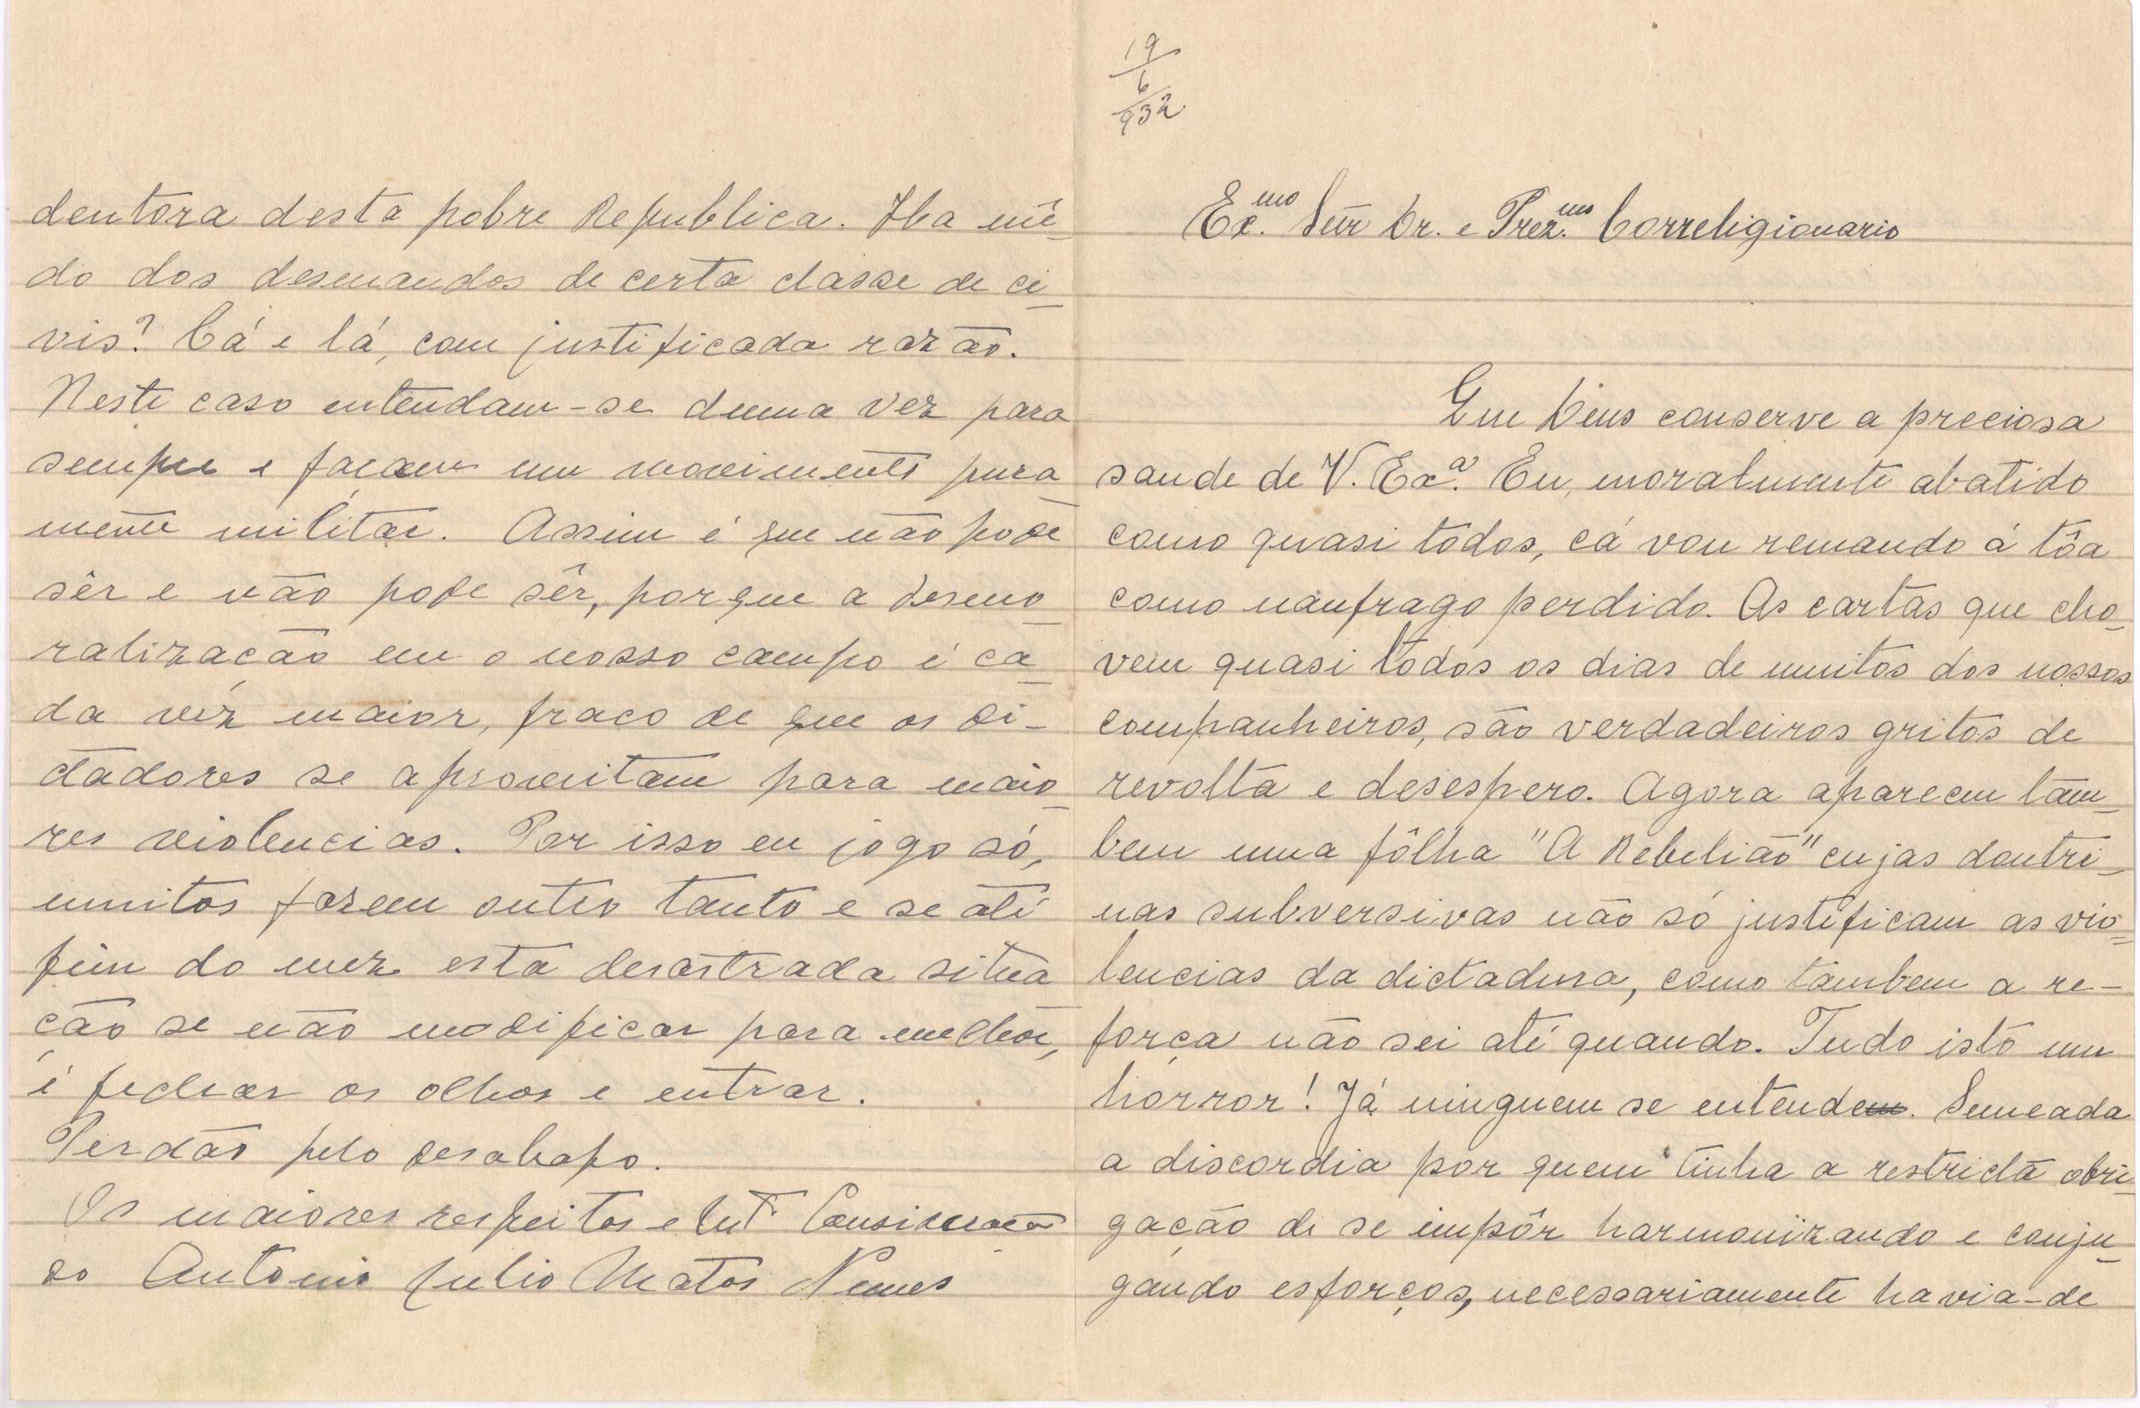 19
6
932
Ex.mo Snr Dr. e Prez.mo Correligionario
Que Deus conserve a preciosa
saude de V. Exª. Eu, moralmente abatido
como quasi todos, cá vou remando á tôa
como naufrago perdido. As cartas que cho-
vem quasi todos os dias de muitos dos nossos
companheiros, são verdadeiros gritos de
revolta e desespero. Agora aparecem tam-
bem uma fôlha "A Rebelião" cujas doutri-
nas subversivas não só justificam as vio-
lencias da dictadura, como tambem a re-
força não sei até quando. Tudo isto um
horror! Já ninguem se entende. Semeada
a discordia por quem tinha a restricta obri-
gação de se impôr harmonizando e conju-
gando esforços, necessariamente havia-de
dentora desta pobre Republica. Ha mê-
do dos desmandos de certa classe de ci-
vis? Cá e lá, com justificada razão.
Neste caso entendam-se duma vez para
sempre e façam um movimento pura
mente militar. Assim é que não pode
sêr e não pode sêr, porque a desmo-
ralização em o nosso campo é ca-
da vez maior, fraco de que os di-
ctadores se aproveitam para maio-
res violencias. Por isso eu jogo só,
muitos fazem outro tanto e se até
fim do mez esta desastrada situa
ção se não modificar para melhor,
é fechar os olhos e entrar.
Perdão pelo desabafo.
Os maiores respeitos e Consideração
do Antonio Julio Matos Nunes